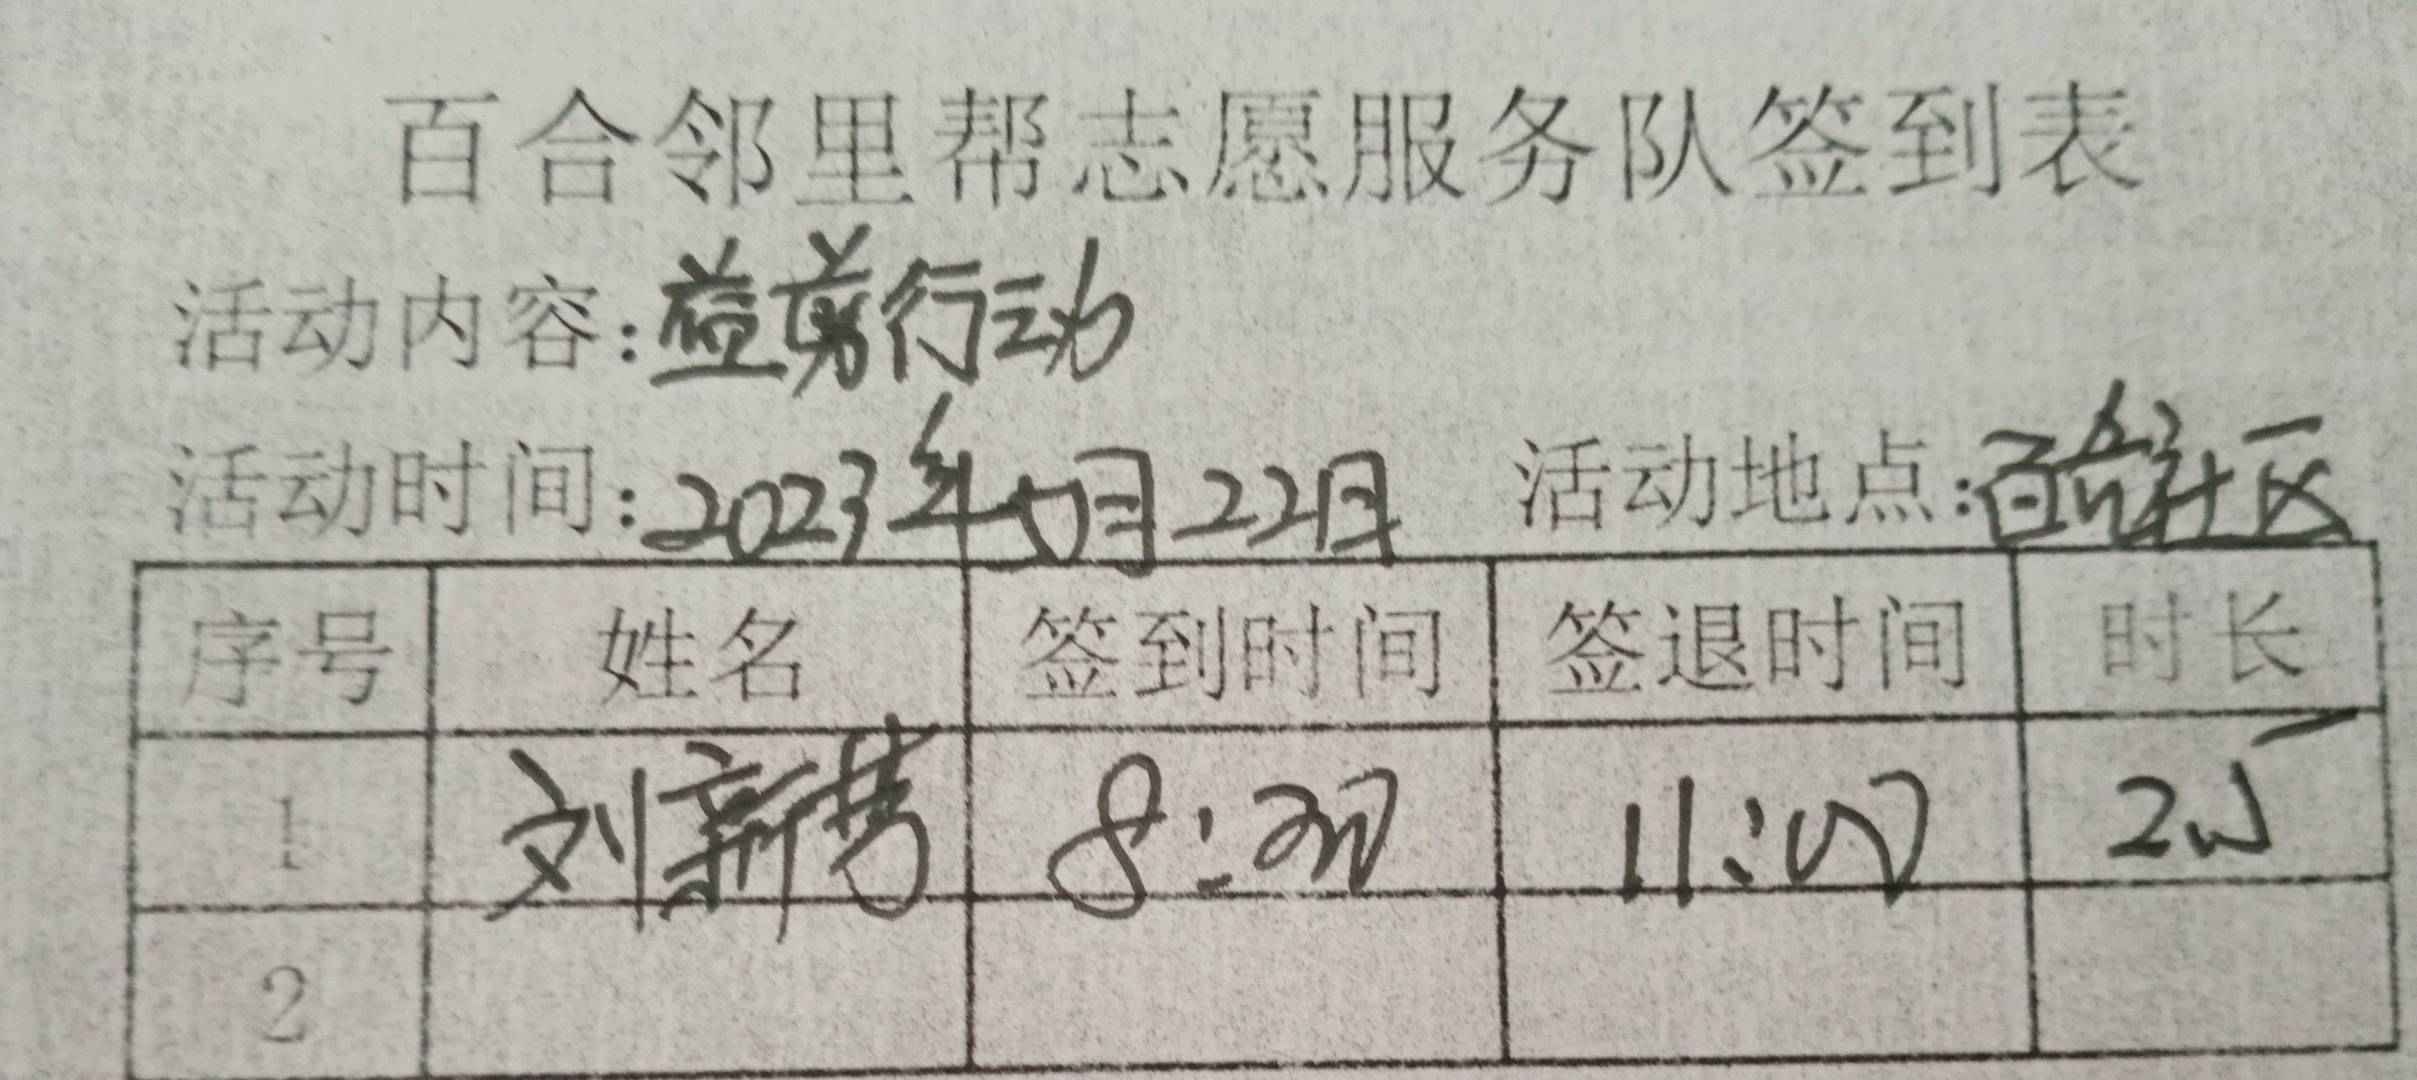 百合邻里帮志愿服务队签到表
活动内容:益剪行动
活动时间:2023年 月22日 活动地点:百合社区
序号 姓名 签到时间 签退时间 时长
1 刘新芳 8:30 11:00 2.5
2